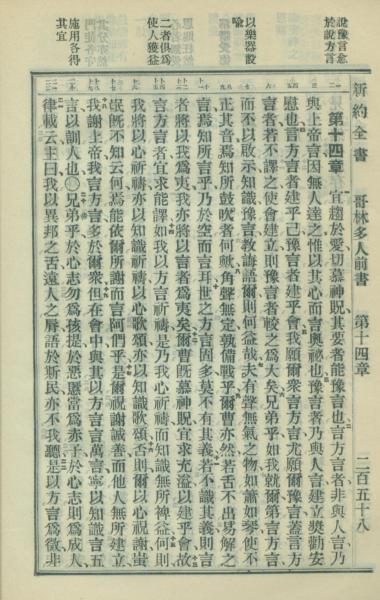 新約全書　哥林多人前書　第十四章　二百五十八
說豫言愈
於說方言
以樂器設
喻
二者俱爲
使人獲益
施用各得
其宜
第十四章　宜趨於愛切慕神貺其要者能豫言也言方言者非與人言乃
與上帝言因無人達之惟以其心而言奧祕也豫言者乃與人言建立奬勸安
慰也言方言者建乎己豫言者建乎會我願爾衆言方言尤願爾豫言蓋言方
言者若不譯之使會建立則豫言者較之爲大矣兄弟乎如我就爾第言方言
而不以啟示知識豫言教誨語爾則何益哉夫有聲無氣之物如簫如琴使不
正其音焉知所鼓吹者何歟角聲無定孰備戰乎爾曹亦然若舌不出易解之
言焉知所言乎乃於空而言耳世之方言固多莫不有其義若不識其義則言
者將以我爲夷我亦將以言者爲夷矣爾曹旣慕神貺宜求充溢以建乎會故
言方言者宜求能譯如我以方言祈禱是乃我心祈禱而知識無所裨益何則
我將以心祈禱亦以知識祈禱以心歌頌亦以知識歌頌否則爾以心祝謝蚩
氓旣不知云何焉能依爾所謝而言阿們乎是爾祝謝誠善而他人無所建立
我謝上帝我言方言多於爾衆但在會中與其以方言言萬言寧以知識言五
言以訓人也○兄弟乎於心志勿爲孩提於惡慝當爲赤子於心志則爲成人
律載云主曰我以異邦之舌遠人之脣語於斯民亦不我聽是以方言爲徵非